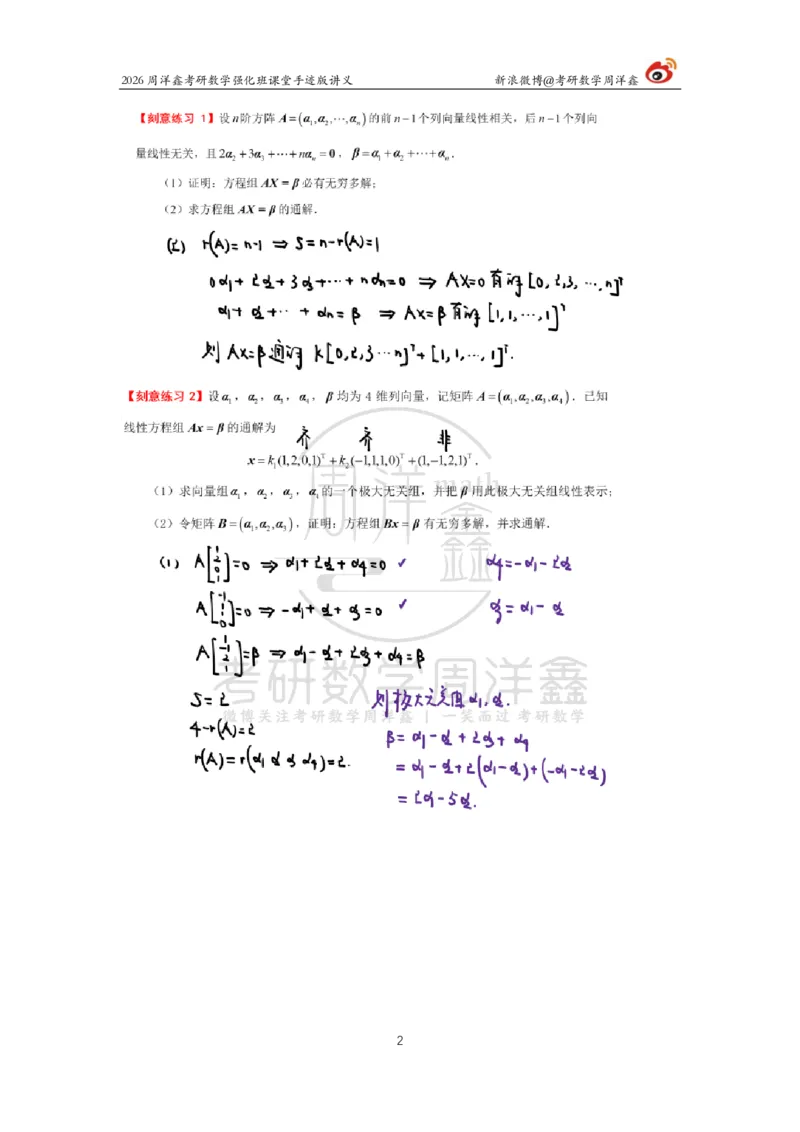 2026周洋鑫考研数学强化班课堂手迹版讲义 新浪微博@考研数学周洋鑫
【刻意练习 1】设n阶方阵 A=(α₁,α₂,⋯,αₙ)的前n−1个列向量线性相关，后n−1个列向
量线性无关，且2α₂+3α₃+⋯+nαₙ=0，β=α₁+α₂+⋯+αₙ.
（1）证明：方程组AX=β必有无穷多解；
（2）求方程组AX=β的通解．
(2) r(A)=n-1 ⇒ S=n-r(A)=1
0α₁+2α₂+3α₃+⋯+nαₙ=0 ⇒ AX=0有解[0,2,3,⋯,n]ᵀ
α₁+α₂+⋯+αₙ=β ⇒ AX=β有解[1,1,⋯,1]ᵀ
则AX=β通解 k[0,2,3⋯n]ᵀ+[1,1,⋯,1]ᵀ.
【刻意练习2】设α₁，α₂，α₃，α₄，β均为4维列向量，记矩阵A=(α₁,α₂,α₃,α₄)．已知
线性方程组Ax=β的通解为
齐 齐 非
x=k₁(1,2,0,1)ᵀ+k₂(−1,1,1,0)ᵀ+(1,−1,2,1)ᵀ.
（1）求向量组α₁，α₂，α₃，α₄的一个极大无关组，并把β用此极大无关组线性表示；
（2）令矩阵B=(α₁,α₂,α₃)，证明：方程组Bx=β有无穷多解，并求通解．
(1) A[1 2 0 1]=0 ⇒ α₁+2α₂+α₄=0 ✓ α₄=-α₁-2α₂
A[-1 1 1 0]=0 ⇒ -α₁+α₂+α₃=0 ✓ α₃=α₁-α₂
A[1 -1 2 1]=β ⇒ α₁-α₂+2α₃+α₄=β
S=2 则极大无关组α₁,α₂.
4-r(A)=2 β=α₁-α₂+2α₃+α₄
r(A)=r(α₁ α₂ α₃ α₄)=2. =α₁-α₂+2(α₁-α₂)+(-α₁-2α₂)
=2α₁-5α₂.
周洋鑫
math
考研数学周洋鑫
微博关注考研数学周洋鑫 | 一笑而过 考研数学
2